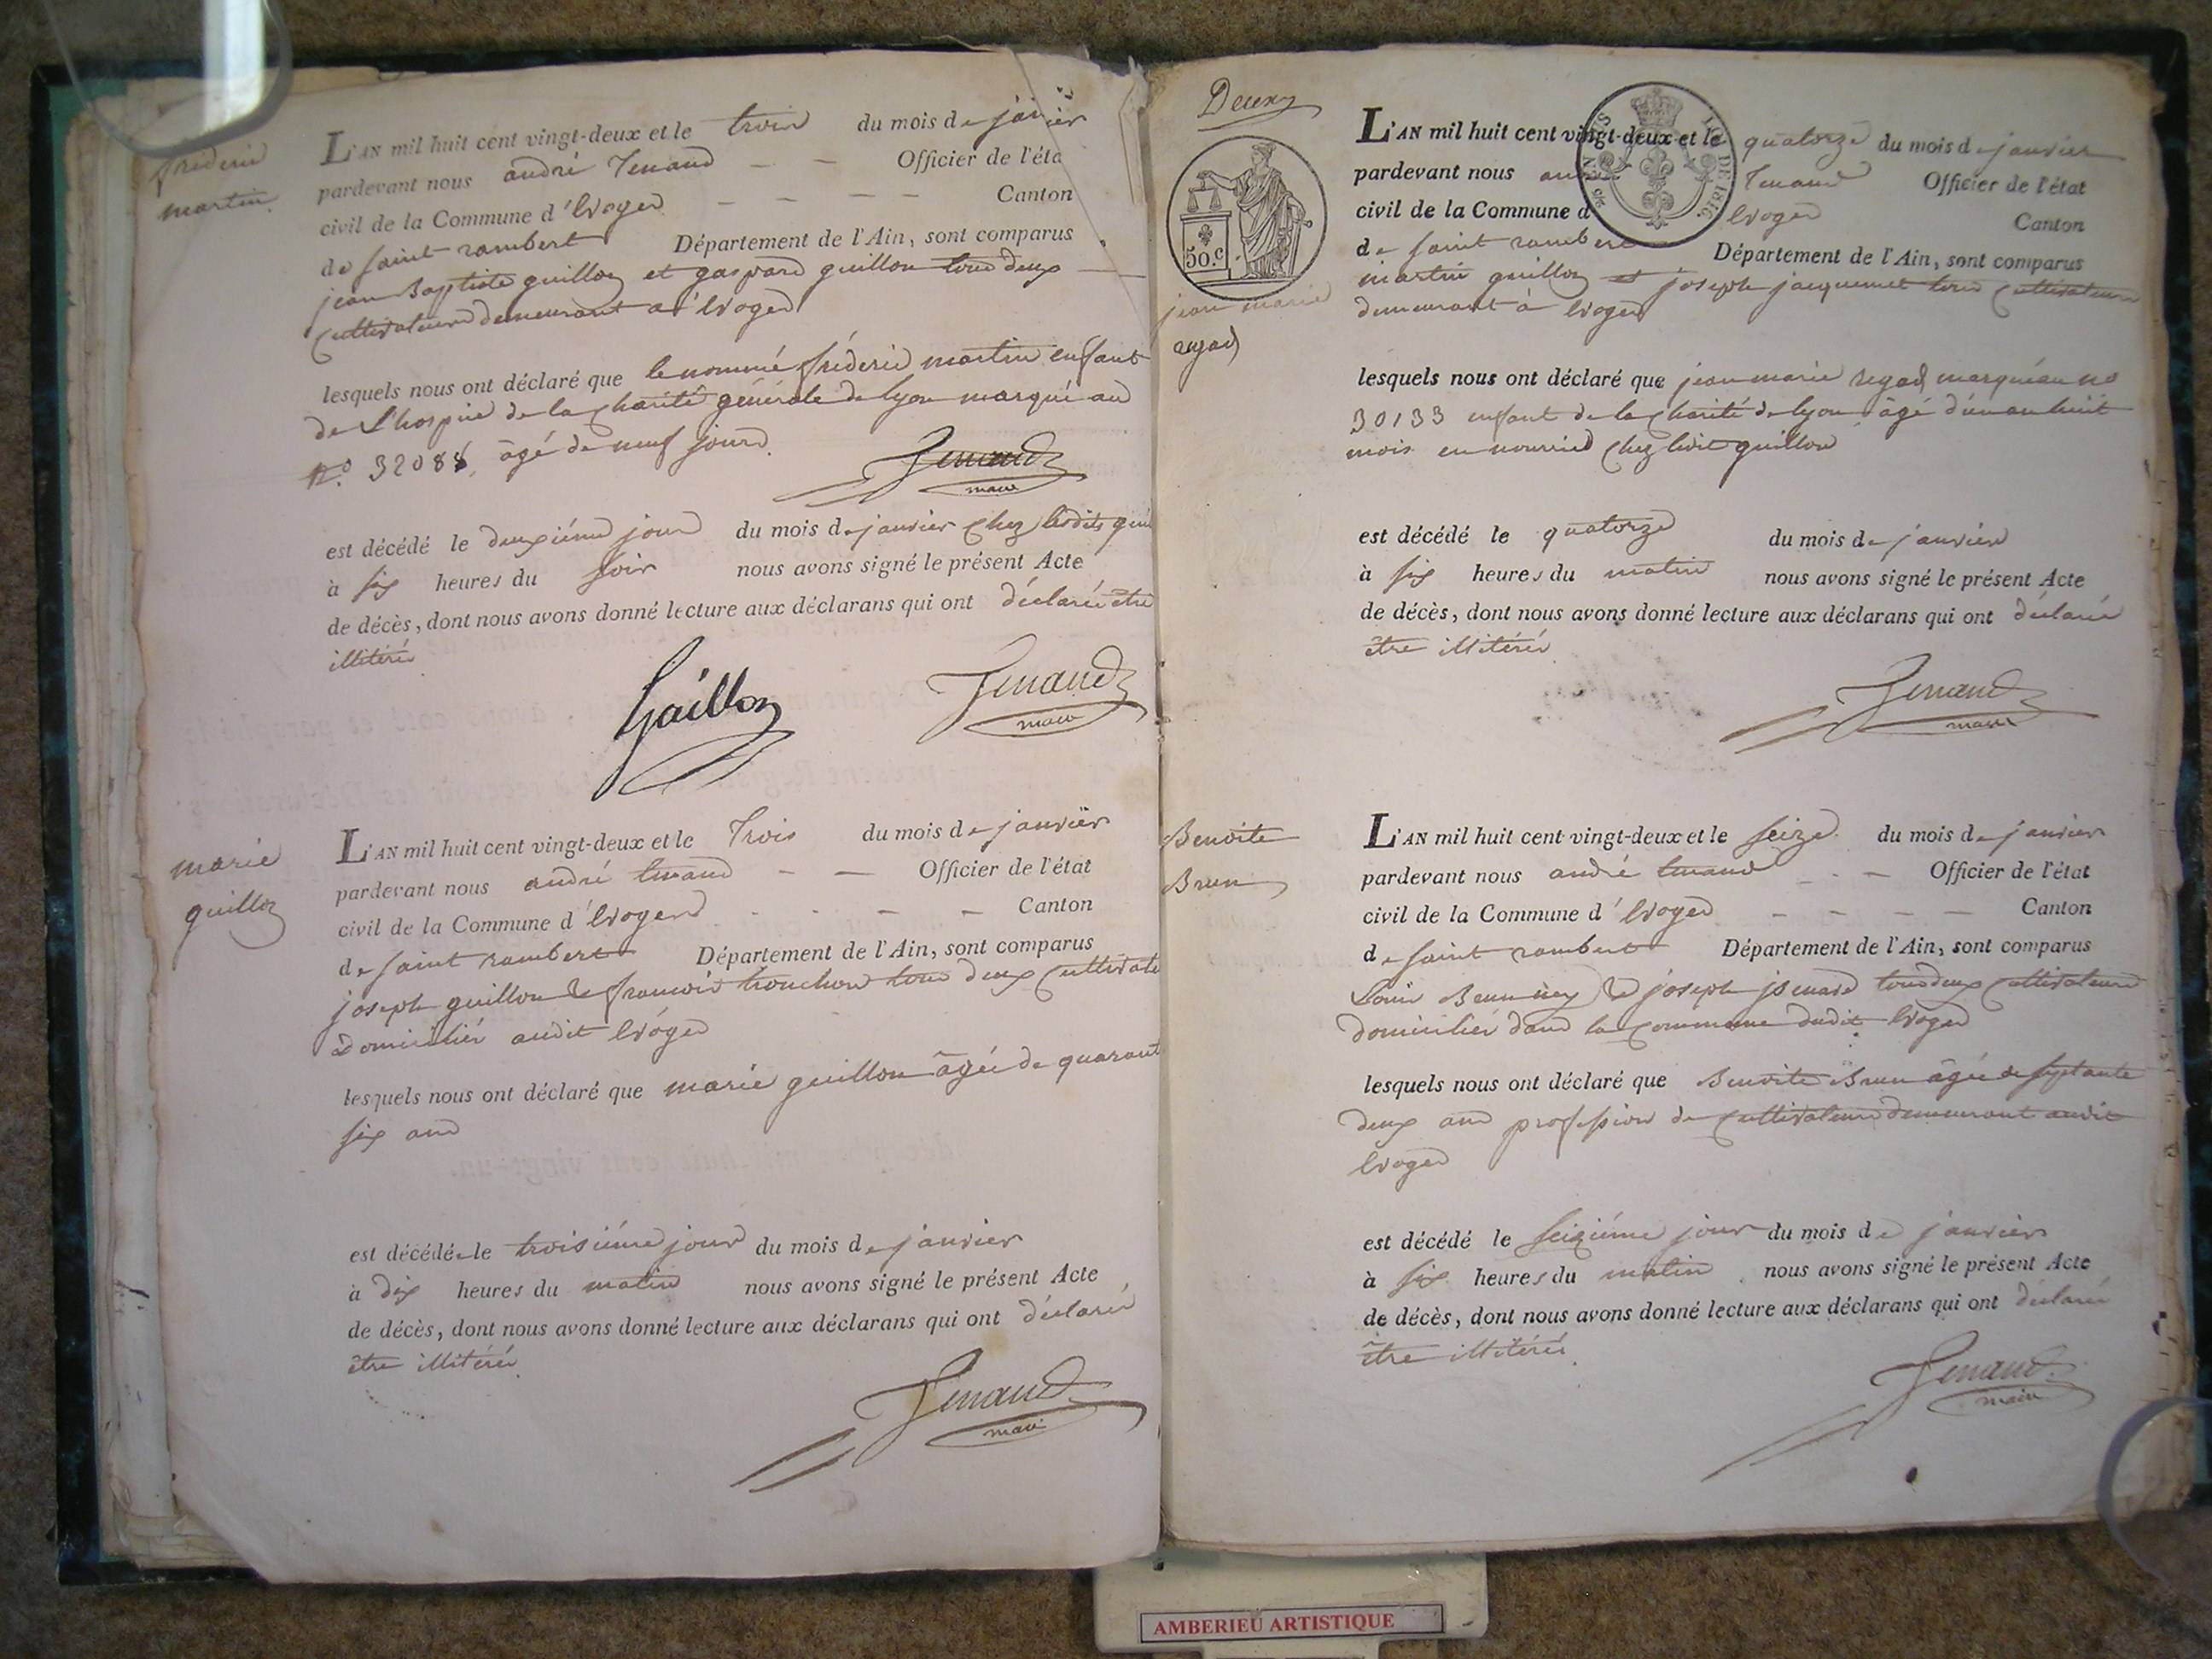 fréderic
martin
L'AN mil huit cent vingt-deux et le trois du mois de janvier
pardevant nous andré Tenand Officier de l'éta
civil de la Commune d'Evoges Canton
de saint rambert Département de l'Ain, sont comparus
jean Baptiste guillon et gaspard guillon tous deux
cultivateurs demeurant a Evoges
lesquels nous ont déclaré que le nommé fréderic martin enfant
de L'hospice de la charité générale de lyon marqué au
N.º 32088, âgé de neuf jours
Tenand
maire
est décédé le deuxiéme jour du mois de janvier chez lesdits
à six heures du soir nous avons signé le présent Acte
de décès, dont nous avons donné lecture aux déclarans qui ont déclaré être
illitérés
Guillon
Tenand
maire
marie
guillon
L'AN mil huit cent vingt-deux et le Trois du mois de janvier
pardevant nous andré tenand Officier de l'état
civil de la Commune d'Evoges Canton
de saint rambert Département de l'Ain, sont comparus
joseph guillon & francois trouchon tous deux cultivate
domiciliés audit Evoges
lesquels nous ont déclaré que marie guillon âgée de quarant
six ans
est décédée le troisiéme jour du mois de janvier
à dix heures du matin nous avons signé le présent Acte
de décès, dont nous avons donné lecture aux déclarans qui ont déclarés
être illitérés
Tenand
maire
Deux
50.c
jean marie
regad
L'AN mil huit cent vingt-deux et le quatorze du mois de janvier
pardevant nous Tenand Officier de l'état
civil de la Commune d Evoges Canton
de saint rambert Département de l'Ain, sont comparus
martin guillon et joseph jacquemet tous cultivateurs
demeurant à Evoges
lesquels nous ont déclaré que jean marie regad marqué au no
30133 enfant de la charité de lyon âgé d'un an huit
mois en nourrice chez ledit guillon
est décédé le quatorze du mois de janvier
à six heures du matin nous avons signé le présent Acte
de décès, dont nous avons donné lecture aux déclarans qui ont déclaré
être illitérés
Tenand
maire
Benoite
Brun
L'AN mil huit cent vingt-deux et le seize du mois de janvier
pardevant nous andré tenand Officier de l'état
civil de la Commune d'Evoges Canton
de saint rambert Département de l'Ain, sont comparus
Louis & joseph tous deux cultivateurs
domiciliés dans la commune dudit Evoges
lesquels nous ont déclaré que Benoite Brun âgée de septante
deux ans profession de cultivateurs demeurant audit
Evoges
est décédé le seiziéme jour du mois de janvier
à six heures du matin nous avons signé le présent Acte
de décès, dont nous avons donné lecture aux déclarans qui ont déclaré
être illitérés
Tenand
maire
AMBERIEU ARTISTIQUE